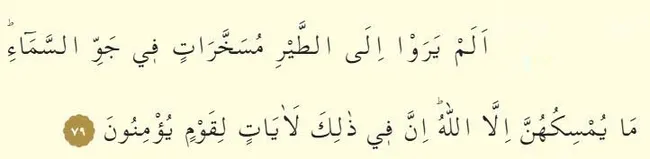 اَلَمْ يَرَوْا اِلَى الطَّيْرِ مُسَخَّرَاتٍ ف۪ي جَوِّ السَّمَٓاءِۜ
مَا يُمْسِكُهُنَّ اِلَّا اللّٰهُۜ اِنَّ ف۪ي ذٰلِكَ لَاٰيَاتٍ لِقَوْمٍ يُؤْمِنُونَ ٧٩